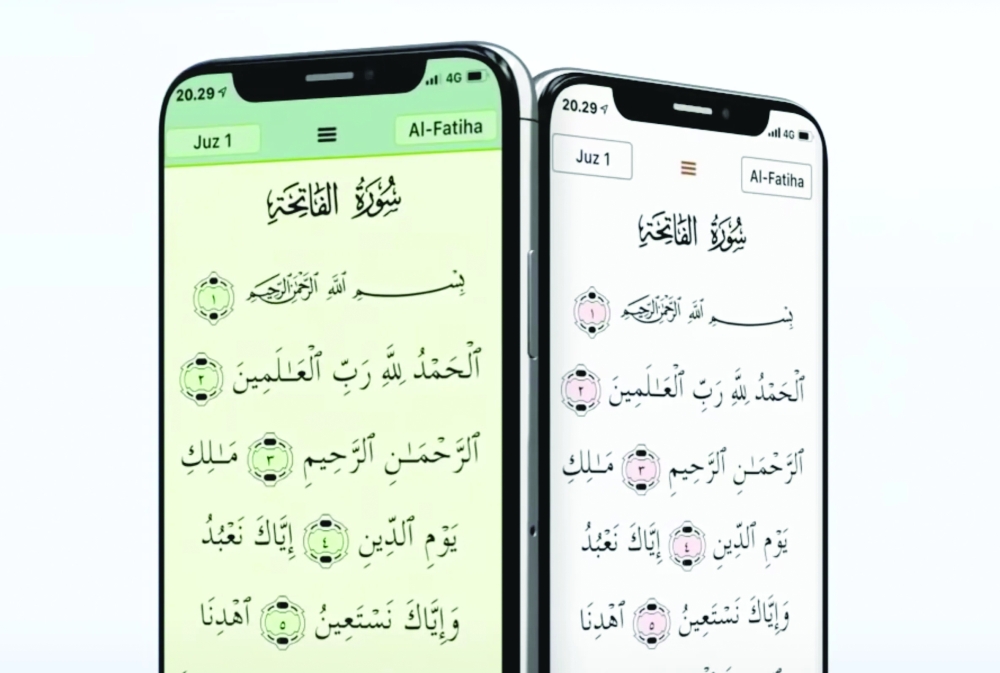 20.29
4G
Juz 1
Al-Fatiha
سُورَةُ الفَاتِحَةِ
بِسْمِ اللَّهِ الرَّحْمَٰنِ الرَّحِيمِ ١
ٱلْحَمْدُ لِلَّهِ رَبِّ ٱلْعَـٰلَمِينَ ٢
ٱلرَّحْمَـٰنِ ٱلرَّحِيمِ ٣ مَـٰلِكِ
يَوْمِ ٱلدِّينِ ٤ إِيَّاكَ نَعْبُدُ
وَإِيَّاكَ نَسْتَعِينُ ٥ ٱهْدِنَا
20.29
4G
Juz 1
Al-Fatiha
سُورَةُ الفَاتِحَةِ
بِسْمِ اللَّهِ الرَّحْمَٰنِ الرَّحِيمِ ١
ٱلْحَمْدُ لِلَّهِ رَبِّ ٱلْعَـٰلَمِينَ ٢
ٱلرَّحْمَـٰنِ ٱلرَّحِيمِ ٣ مَـٰلِكِ
يَوْمِ ٱلدِّينِ ٤ إِيَّاكَ نَعْبُدُ
وَإِيَّاكَ نَسْتَعِينُ ٥ ٱهْدِنَا